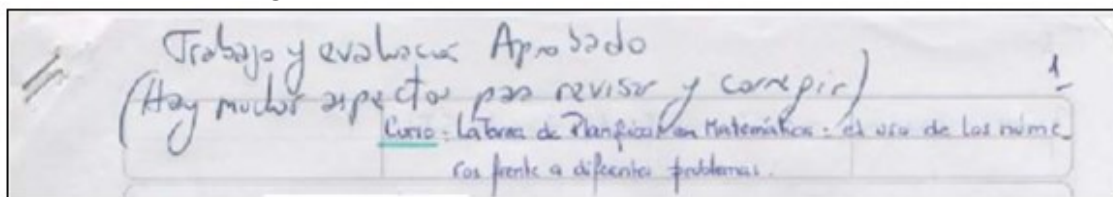 Trabajo y evaluación Aprobado
(Hay muchos aspectos para revisar y corregir)
1
Curso: La Tarea de Planificar en Matemática: el uso de los núme_
ros frente a diferentes problemas.